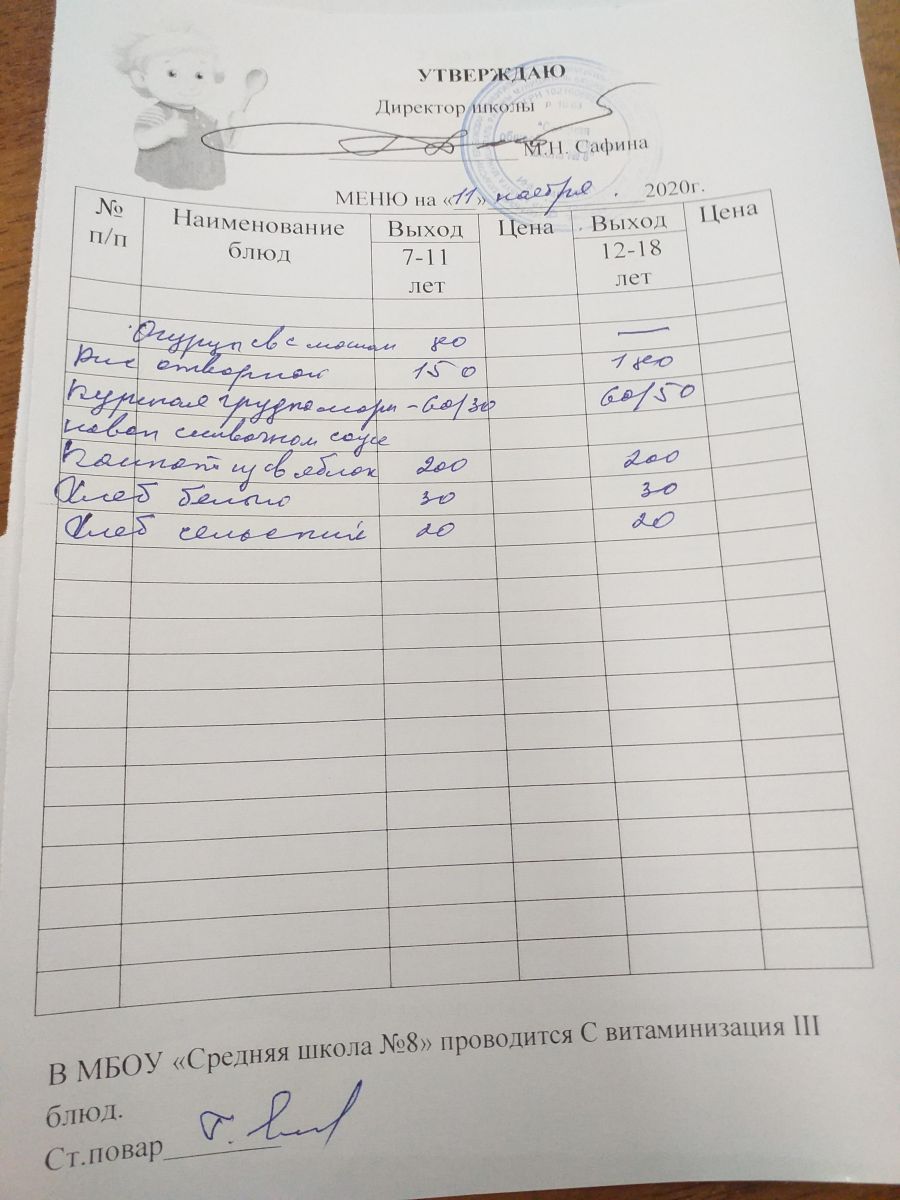 УТВЕРЖДАЮ
Директор школы
М.Н. Сафина
МЕНЮ на «11» ноября. 2020г.
№ п/п Наименование блюд Выход 7-11 лет Цена Выход 12-18 лет Цена
Огурцы св с маслом 80 —
Рис отварной 150 180
Куриная грудка мари- 60/30 60/50
нован сливочном соусе
Компот из св яблок 200 200
Хлеб белый 30 30
Хлеб сельский 20 20
В МБОУ «Средняя школа №8» проводится С витаминизация III
блюд.
Ст.повар